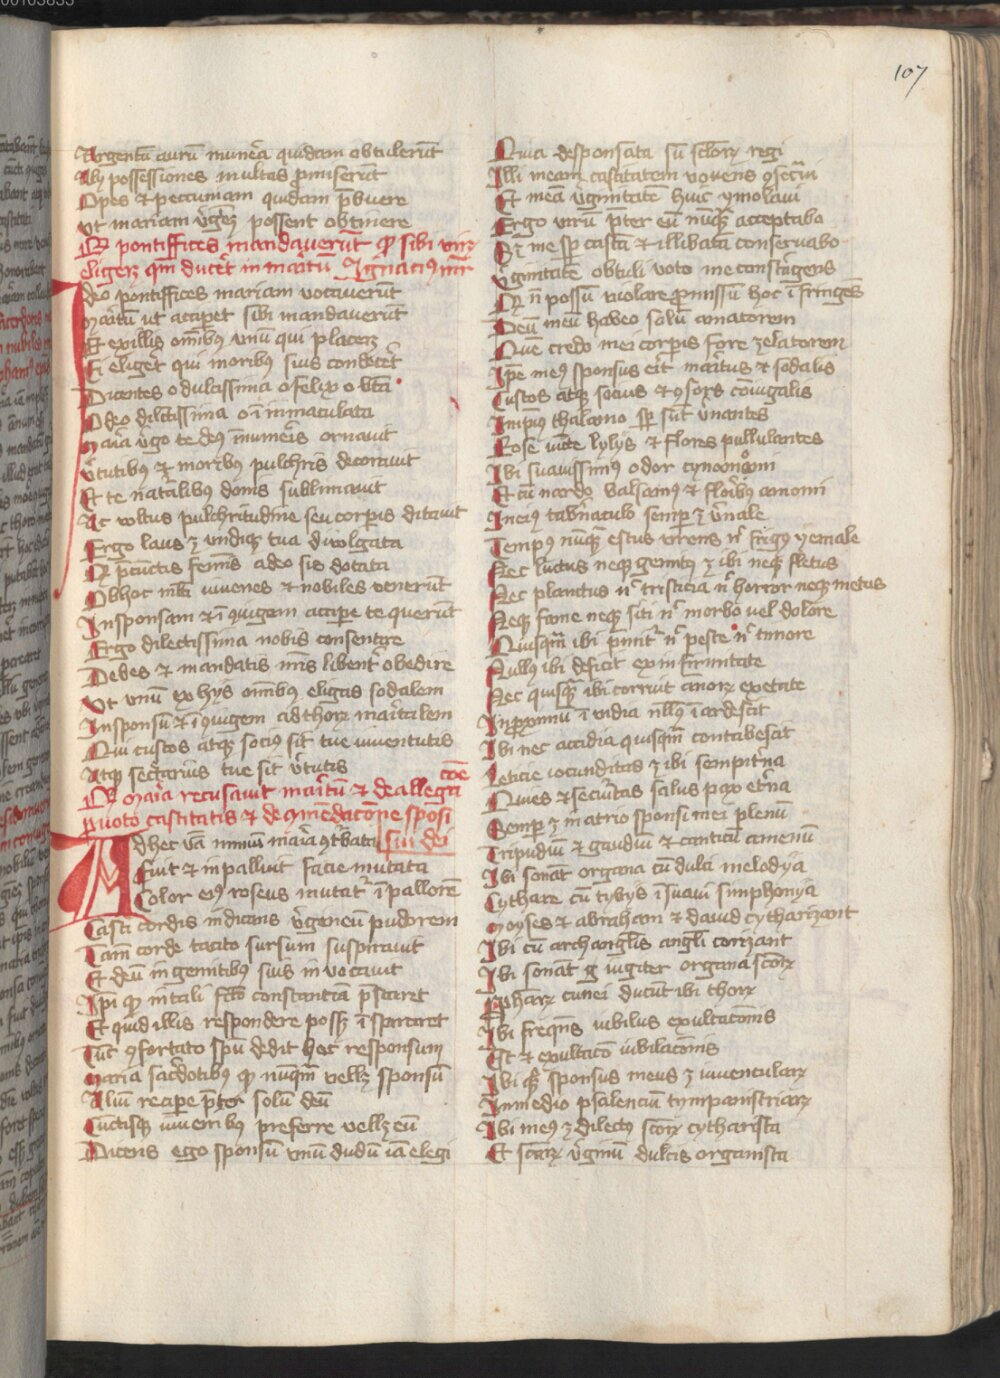 107
Argentū aurū munera quidam obtulerūt
Alÿ possessiones multas promiserūt
Opes et peccuniam quidam prebuere
Ut mariam virginem possent obtinere
Qꝫ pontiffices mandaverūt quod sibi virū
eligeret quem duceret in maritū Ignacius mr̄
Ideo pontiffices mariam vocaverūt
Maritū ut acciperet sibi mandaverūt
Et ex illis omībus unū qui placeret
Ei eligeret qui moribus suis condeceret
Dicentes o dulcissima o felix o beata
O deo dilectissima o in inmaculata
Maria virgo te deus in muneris ornavit
Virtutibus et moribus pulchris decoravit
Et te naturalibus donis sublimavit
Ac voltus pulchritudine seu corporis ditavit
Ergo laus est undique tua divolgata
Quod pre cunctis feminis a deo sis dotata
Obhoc multi iuvenes et nobiles venerūt
In sponsam et in coniugem accipere te querūt
Ergo dilectissima nobis consentire
Debes et mandatis nostris libenter obedire
Ut unū ex hys omībus eligas sodalem
In sponsū et in coniugem ad thorum maritalem
Qui custos atque socius sit tue iuventutis
Atque secretarius tue sit virtutis
Quod maria recusavit maritū et de allegacōe
pro voto castitatis et de comēdacōne sponsi
sui dei
Ad hec verba nimium maria conturbata
Fuit et inpalluit facie mutata
Color eius roseus mutatur in pallorē
Casti cordis indicans virgineū pudorem
Tam corde tacito sursum suspiravit
Et deū in gemitibus suis invocavit
Ipsi quod in tali facto constantiā prestaret
Et quid illis respondere posset inspiraret
Tūc confortato spiritu dedit hec responsum
Maria sacerdotibus quod nunquam vellet sponsū
Aliū recipere preter solū deū
Cunctisque iuvenibus preferre vellet eū
Dicens ego sponsū unū dudū iam elegi
Quia desponsata sū seculorum regi
Illi meam castitatem vovens consecravi
Et meā virginitatē huic ymolavi
Ergo virū preter eū nunquam acceptabo
Et me semper castā et illibatā conservabo
Virginitatē obtuli voto me constringens
Quod non possū violare promissū hoc infringens
Deū meū habeo solū amatorem
Quē credo mei corporis fore zelatorem
Ipse meus sponsus erit maritus et sodalis
Custos atque socius et consors coniugalis
In ipsius thalamo semper sunt vernantes
Rose lylys et flores pullulantes
Ibi suavissimus odor cynomomi
Et cū nardo balsamus et floribus amomi
In eius tabernaculo semper est vernale
Tempus nunquam estus urens nec frigus yemale
Nec luctus neque gemitus est ibi neque fletus
Nec planctus nec tristicia nec horror neque metus
Neque fame neque siti nec morbo vel dolore
Quisquam ibi premitur nec peste nec timore
Nullus ibi deficit ex infirmitate
Nec quisquam ibi corruit annorum ex etate
In proximum invidia nullus inardescit
Ibi nec accidia quisquam contabescit
Leticie iocunditas est ibi sempiterna
Quies et securitas salus pax eterna
Semper est in atrio sponsi mei plenū
Tripudiū et gaudiū et canticū amenū
Ibi sonāt organa cū dulci melodya
Cythare cū tybys in suavi simphonya
Moyses et abraham et david cytharizant
Ibi cū archangelis angeli corizant
Ibi sonāt iugiter organa sanctorum
cunei ducūt ibi thorum
Ibi frequens iubilus exultacionis
Est et exultacō iubilacōnis
Ibi quoque sponsus meus est iuvencularum
In medio psalenciū tympanistriarum
Ibi meus est dilectus sanctorum cytharista
Et sanctarum virginū dulcis organista